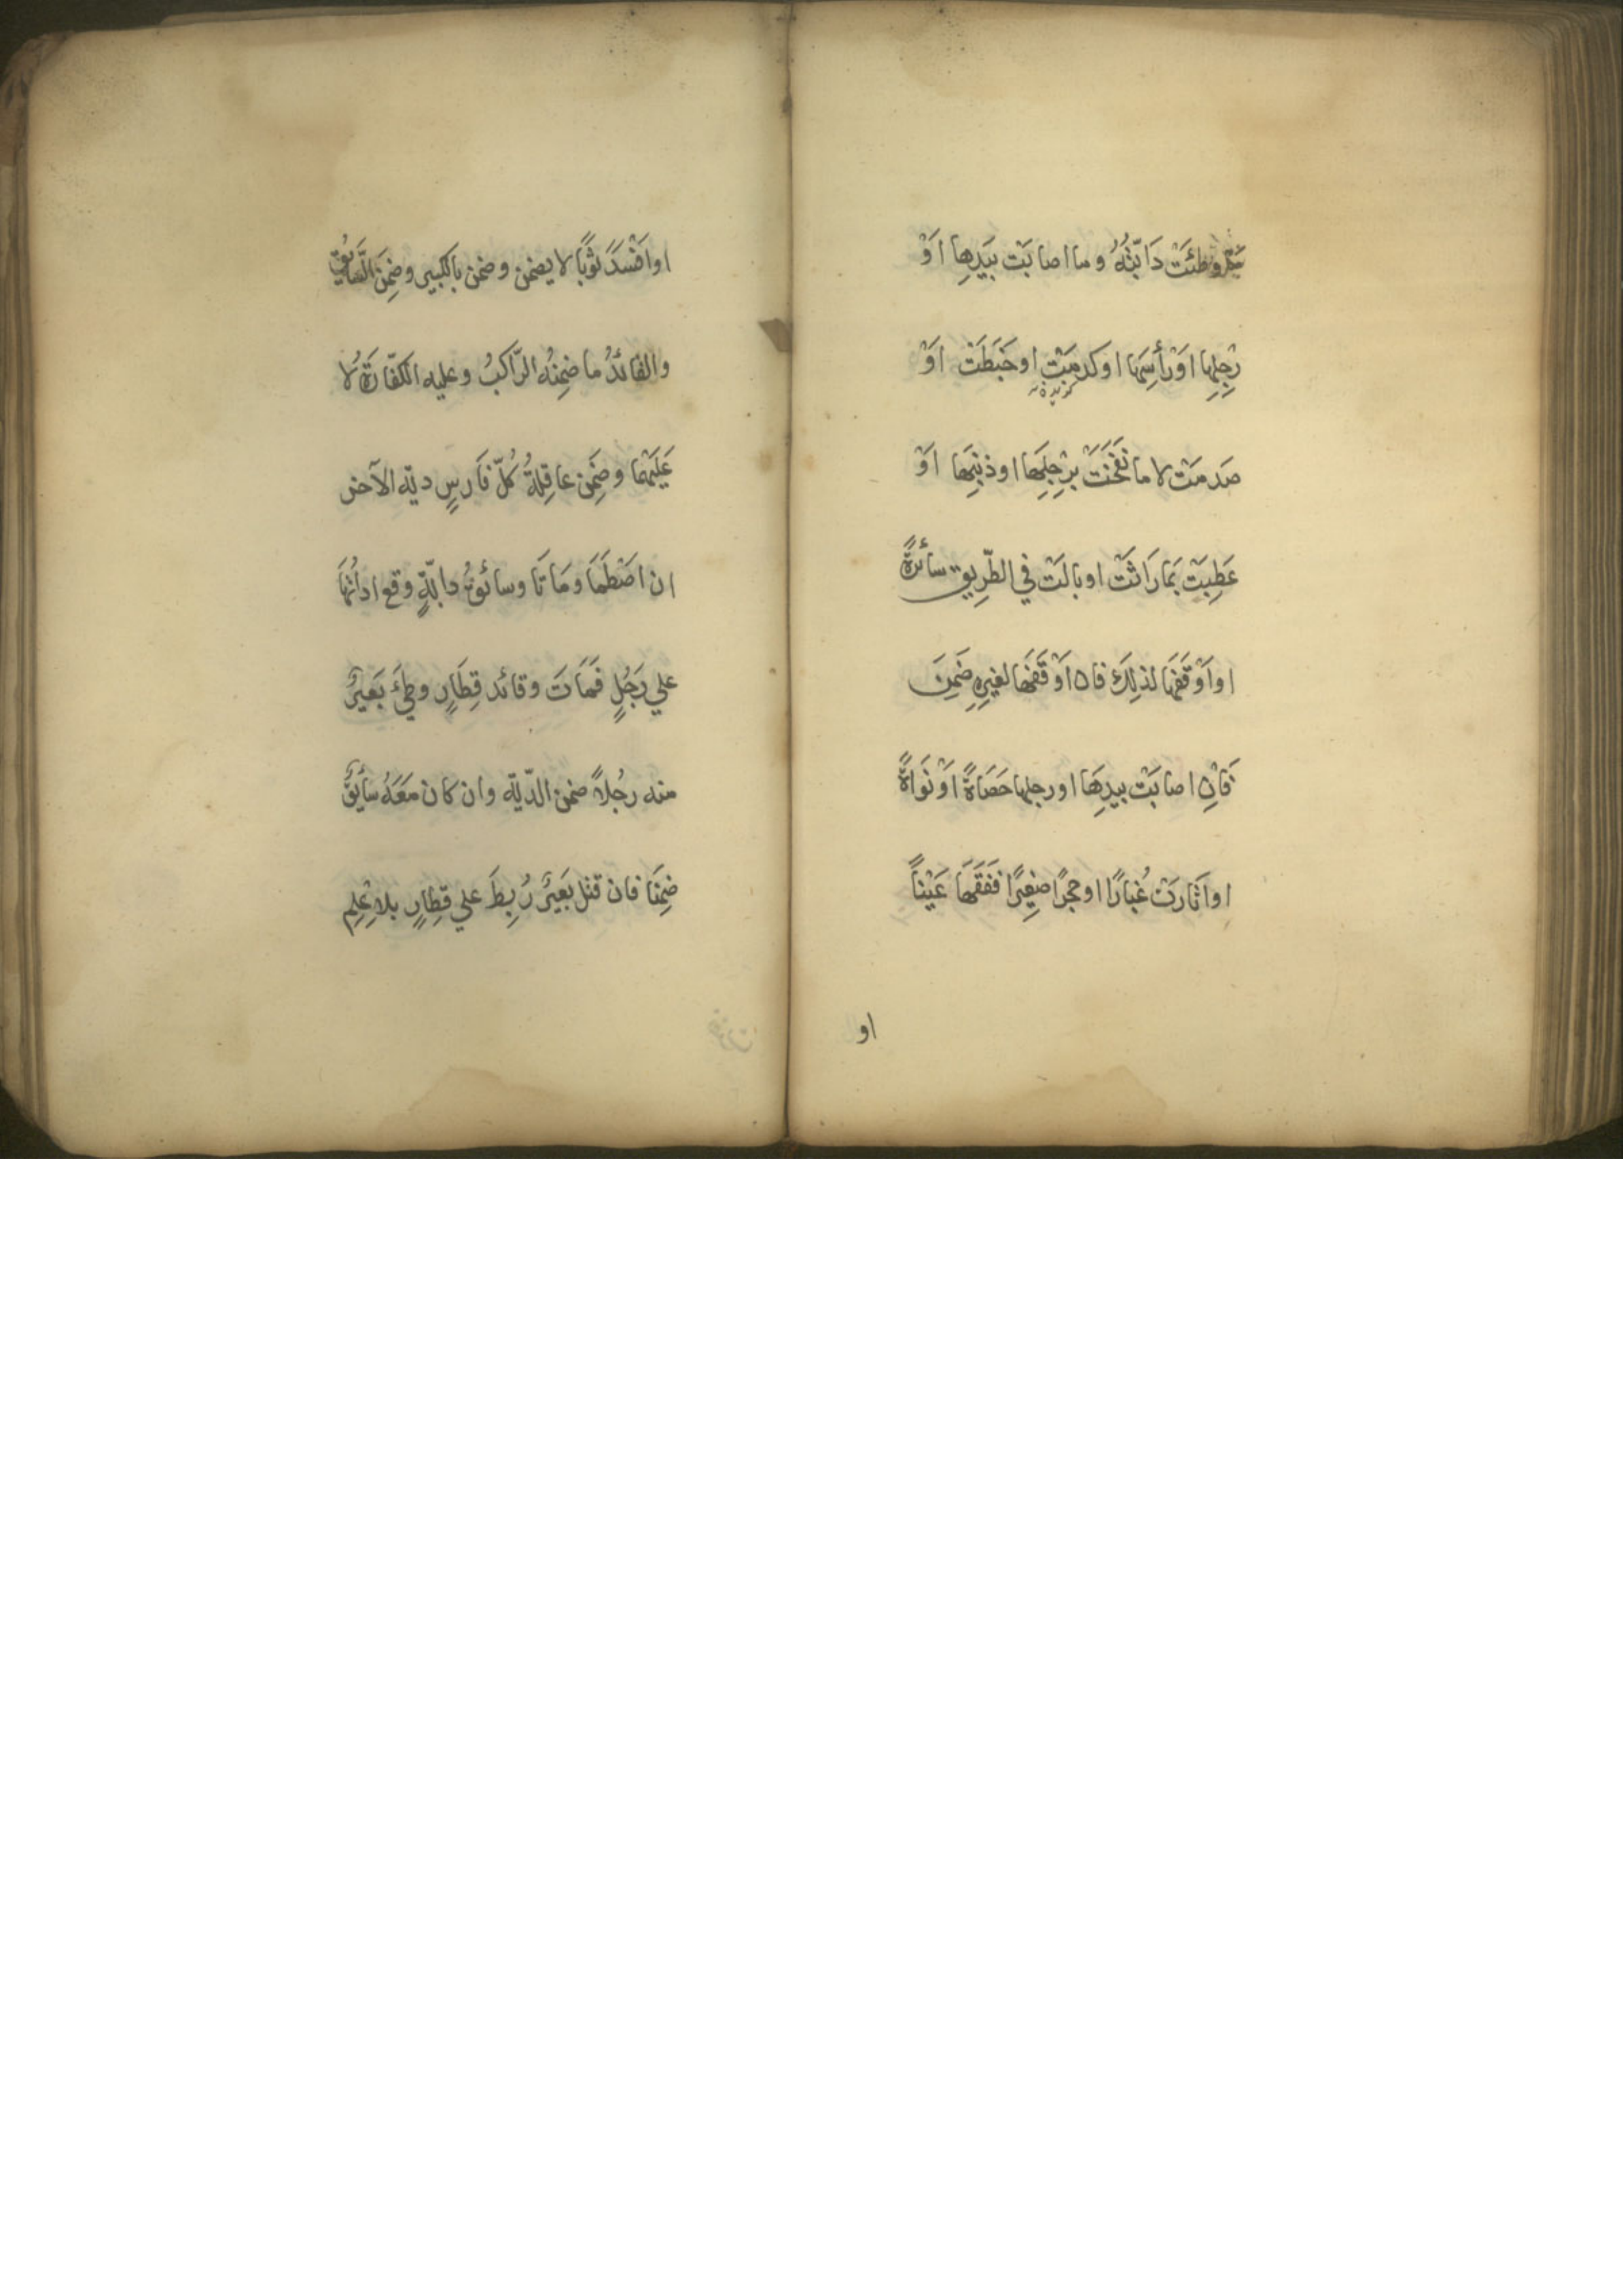 وطئَتْ دَابّتُهُ وما اصابَت بيَدِها اَوْ
رِجْلِها اوْ رَأسِهَا او كدمَتْ او خَبَطَتْ اوْ
صَدمَتْ لا ما نَفَحَتْ بِرْجِلِهَا او ذنبِهَا اوْ
عَطِبَتْ بمَا رَاثَتْ او بالَتْ في الطّرِيق سائرةً
او اَوْقَفَهَا لذلِكَ فان اَوْقَفَهَا لغيرِهِ ضَمِنَ
فَاِن اصابَتْ بيدِهَا او رجلها حَصَاةً اَوْ نَوَاةً
او اَثَارَتْ غُبارًا او حجرًا صغِيرًا فَفَقَهَا عَيْناً
او
او اَفْسَدَ ثوْبًا لا يضمن وضمن بالكبير وضِمنَ السَّايُق
والقائدُ ما ضمِنهُ الرّاكبُ وعليه الكفّارَةُ لا
عَلَيْهمَا وضَمِن عاقِلةُ كُلّ فَارسٍ ديّه الآخر
ان اصْطَدمَا ومَاتَا وسائقُ دابّةٍ وقع اداتُهَا
علي رَجُلٍ فَمَاتَ وقائد قِطَارٍ وطِئَ بَعيرٌ
منه رجُلاً ضمن الدّيّه وان كان مَعَهُ سَايُقٌ
ضِمنَا فان قتل بَعيرٌ رُبِطَ علي قِطارٍ بلاعِلِم